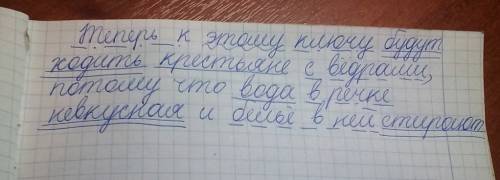 Теперь к этому ключу будут
ходить крестьяне с вёдрами,
потому что вода в речке
невкусная и бельё в ней стирают